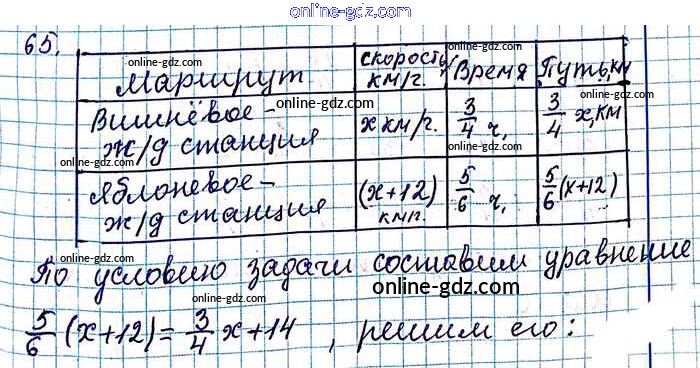 online-gdz.com
65.
Маршрут
скорость, км/г. online-gdz.com
Время
Путь, км
Вишнёвое - ж/д станция
online-gdz.com
х км/г.
3/4 ч,
online-gdz.com
3/4 х, км
Яблоневое - ж/д станция
online-gdz.com
(х+12) км/г.
5/6 ч,
online-gdz.com
5/6 (х+12)
online-gdz.com
По условию задачи составим уравнение
online-gdz.com
online-gdz.com
online-gdz.com
5/6 (х+12) = 3/4 х + 14 , решим его:
online-gdz.com
online-gdz.com